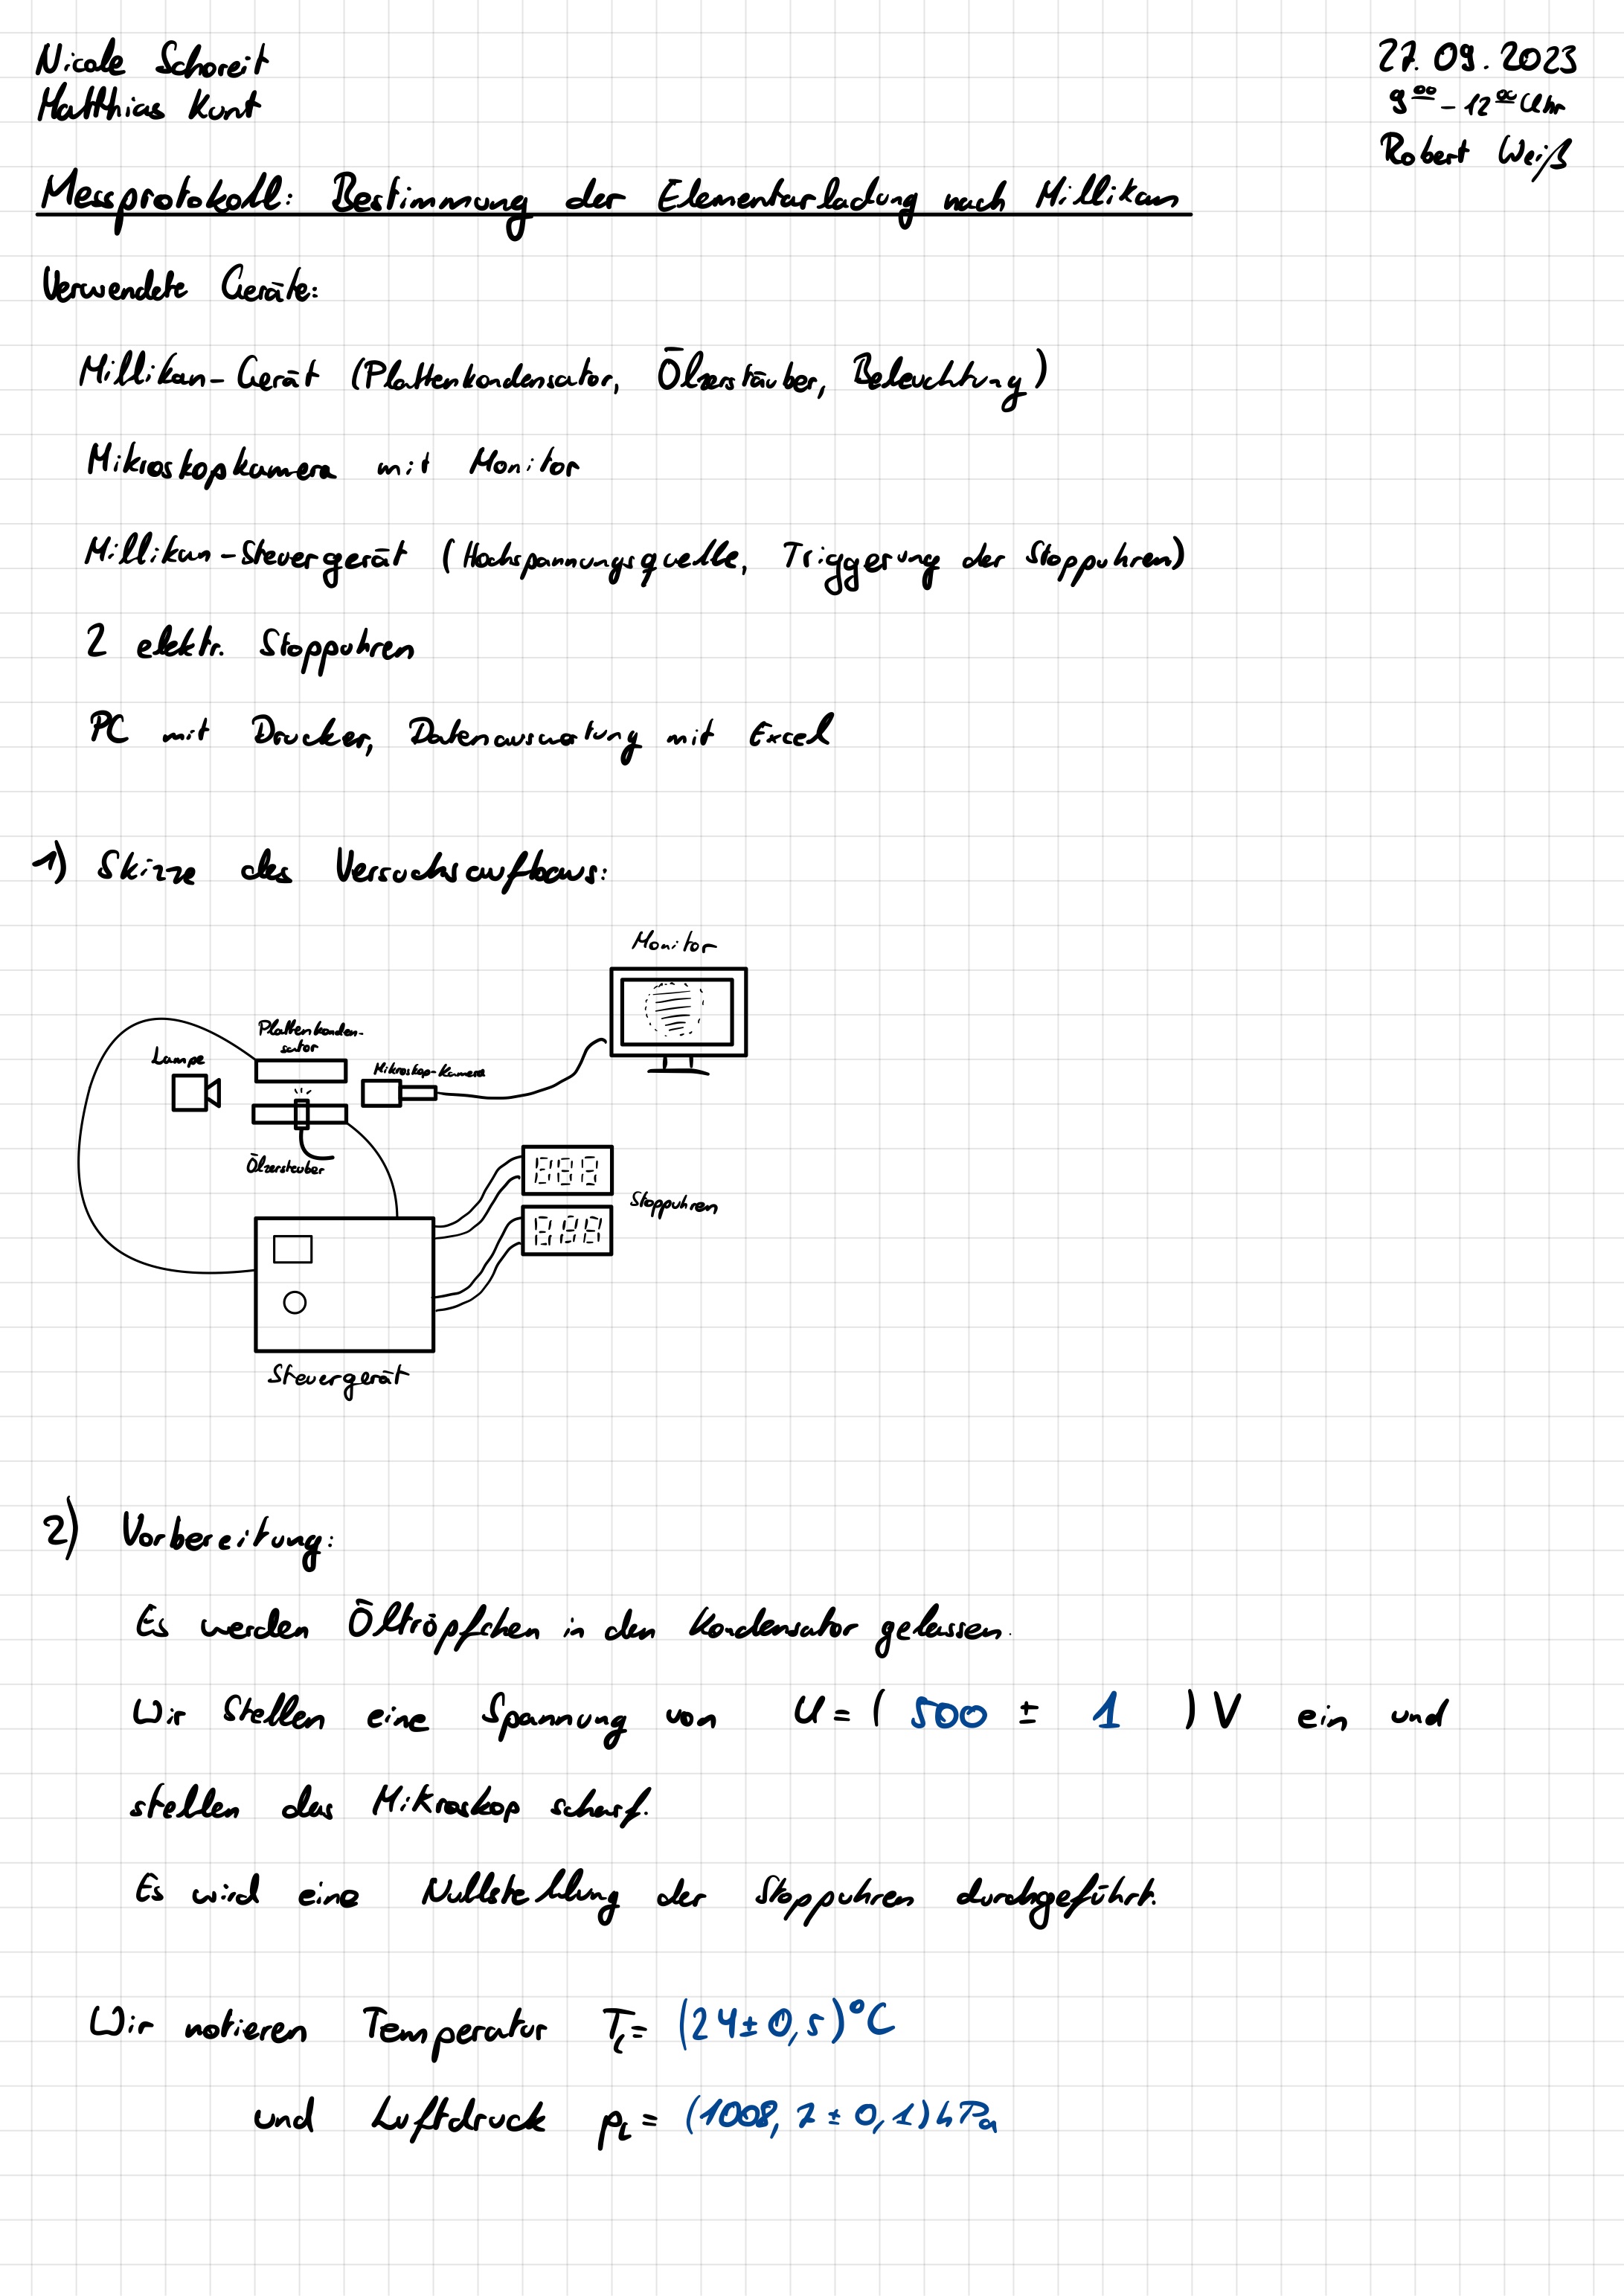 Nicole Schoreit
Matthias Kunt
27.09.2023
9⁰⁰ – 12⁰⁰ Uhr
Robert Weiß
Messprotokoll: Bestimmung der Elementarladung nach Millikan
Verwendete Geräte:
Millikan-Gerät (Plattenkondensator, Ölzerstäuber, Beleuchtung)
Mikroskopkamera mit Monitor
Millikan-Steuergerät (Hochspannungsquelle, Triggerung der Stoppuhren)
2 elektr. Stoppuhren
PC mit Drucker, Datenauswertung mit Excel
1) Skizze des Versuchsaufbaus:
Monitor
Plattenkonden-
sator
Lampe
Mikroskop-Kamera
Ölzersteuber
Stoppuhren
Steuergerät
2) Vorbereitung:
Es werden Öltröpfchen in den Kondensator gelassen.
Wir Stellen eine Spannung von U = ( 500 ± 1 ) V ein und
stellen das Mikroskop scharf.
Es wird eine Nullstellung der Stoppuhren durchgeführt.
Wir notieren Temperatur T_L = (24 ± 0,5)°C
und Luftdruck p_L = (1008,2 ± 0,1) hPa